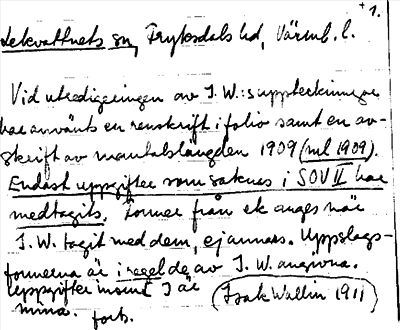 + 1.
Lekvattnets sn, Fryksdals hd, Värml. l.
Vid utredigeringen av I.W:s uppteckningar
har använts en renskrift i folio samt en av-
skrift av mantalslängden 1909 (ml 1909).
Endast uppgifter som saknas i SOV II har
medtagits. Former från ek anges när
I.W. tagit med dem, ej annars. Uppslags-
formerna är i regel de av I.W. angivna.
Uppgifter inom [ ] är (Isak Wallin 1911)
mina. forts.